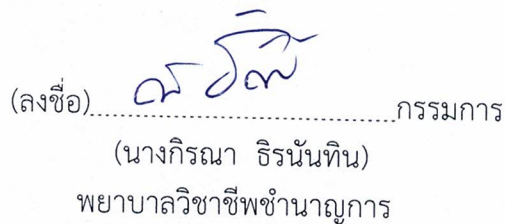 (ลงชื่อ)..........................................กรรมการ
(นางกิรณา ธิรนันทิน)
พยาบาลวิชาชีพชำนาญการ